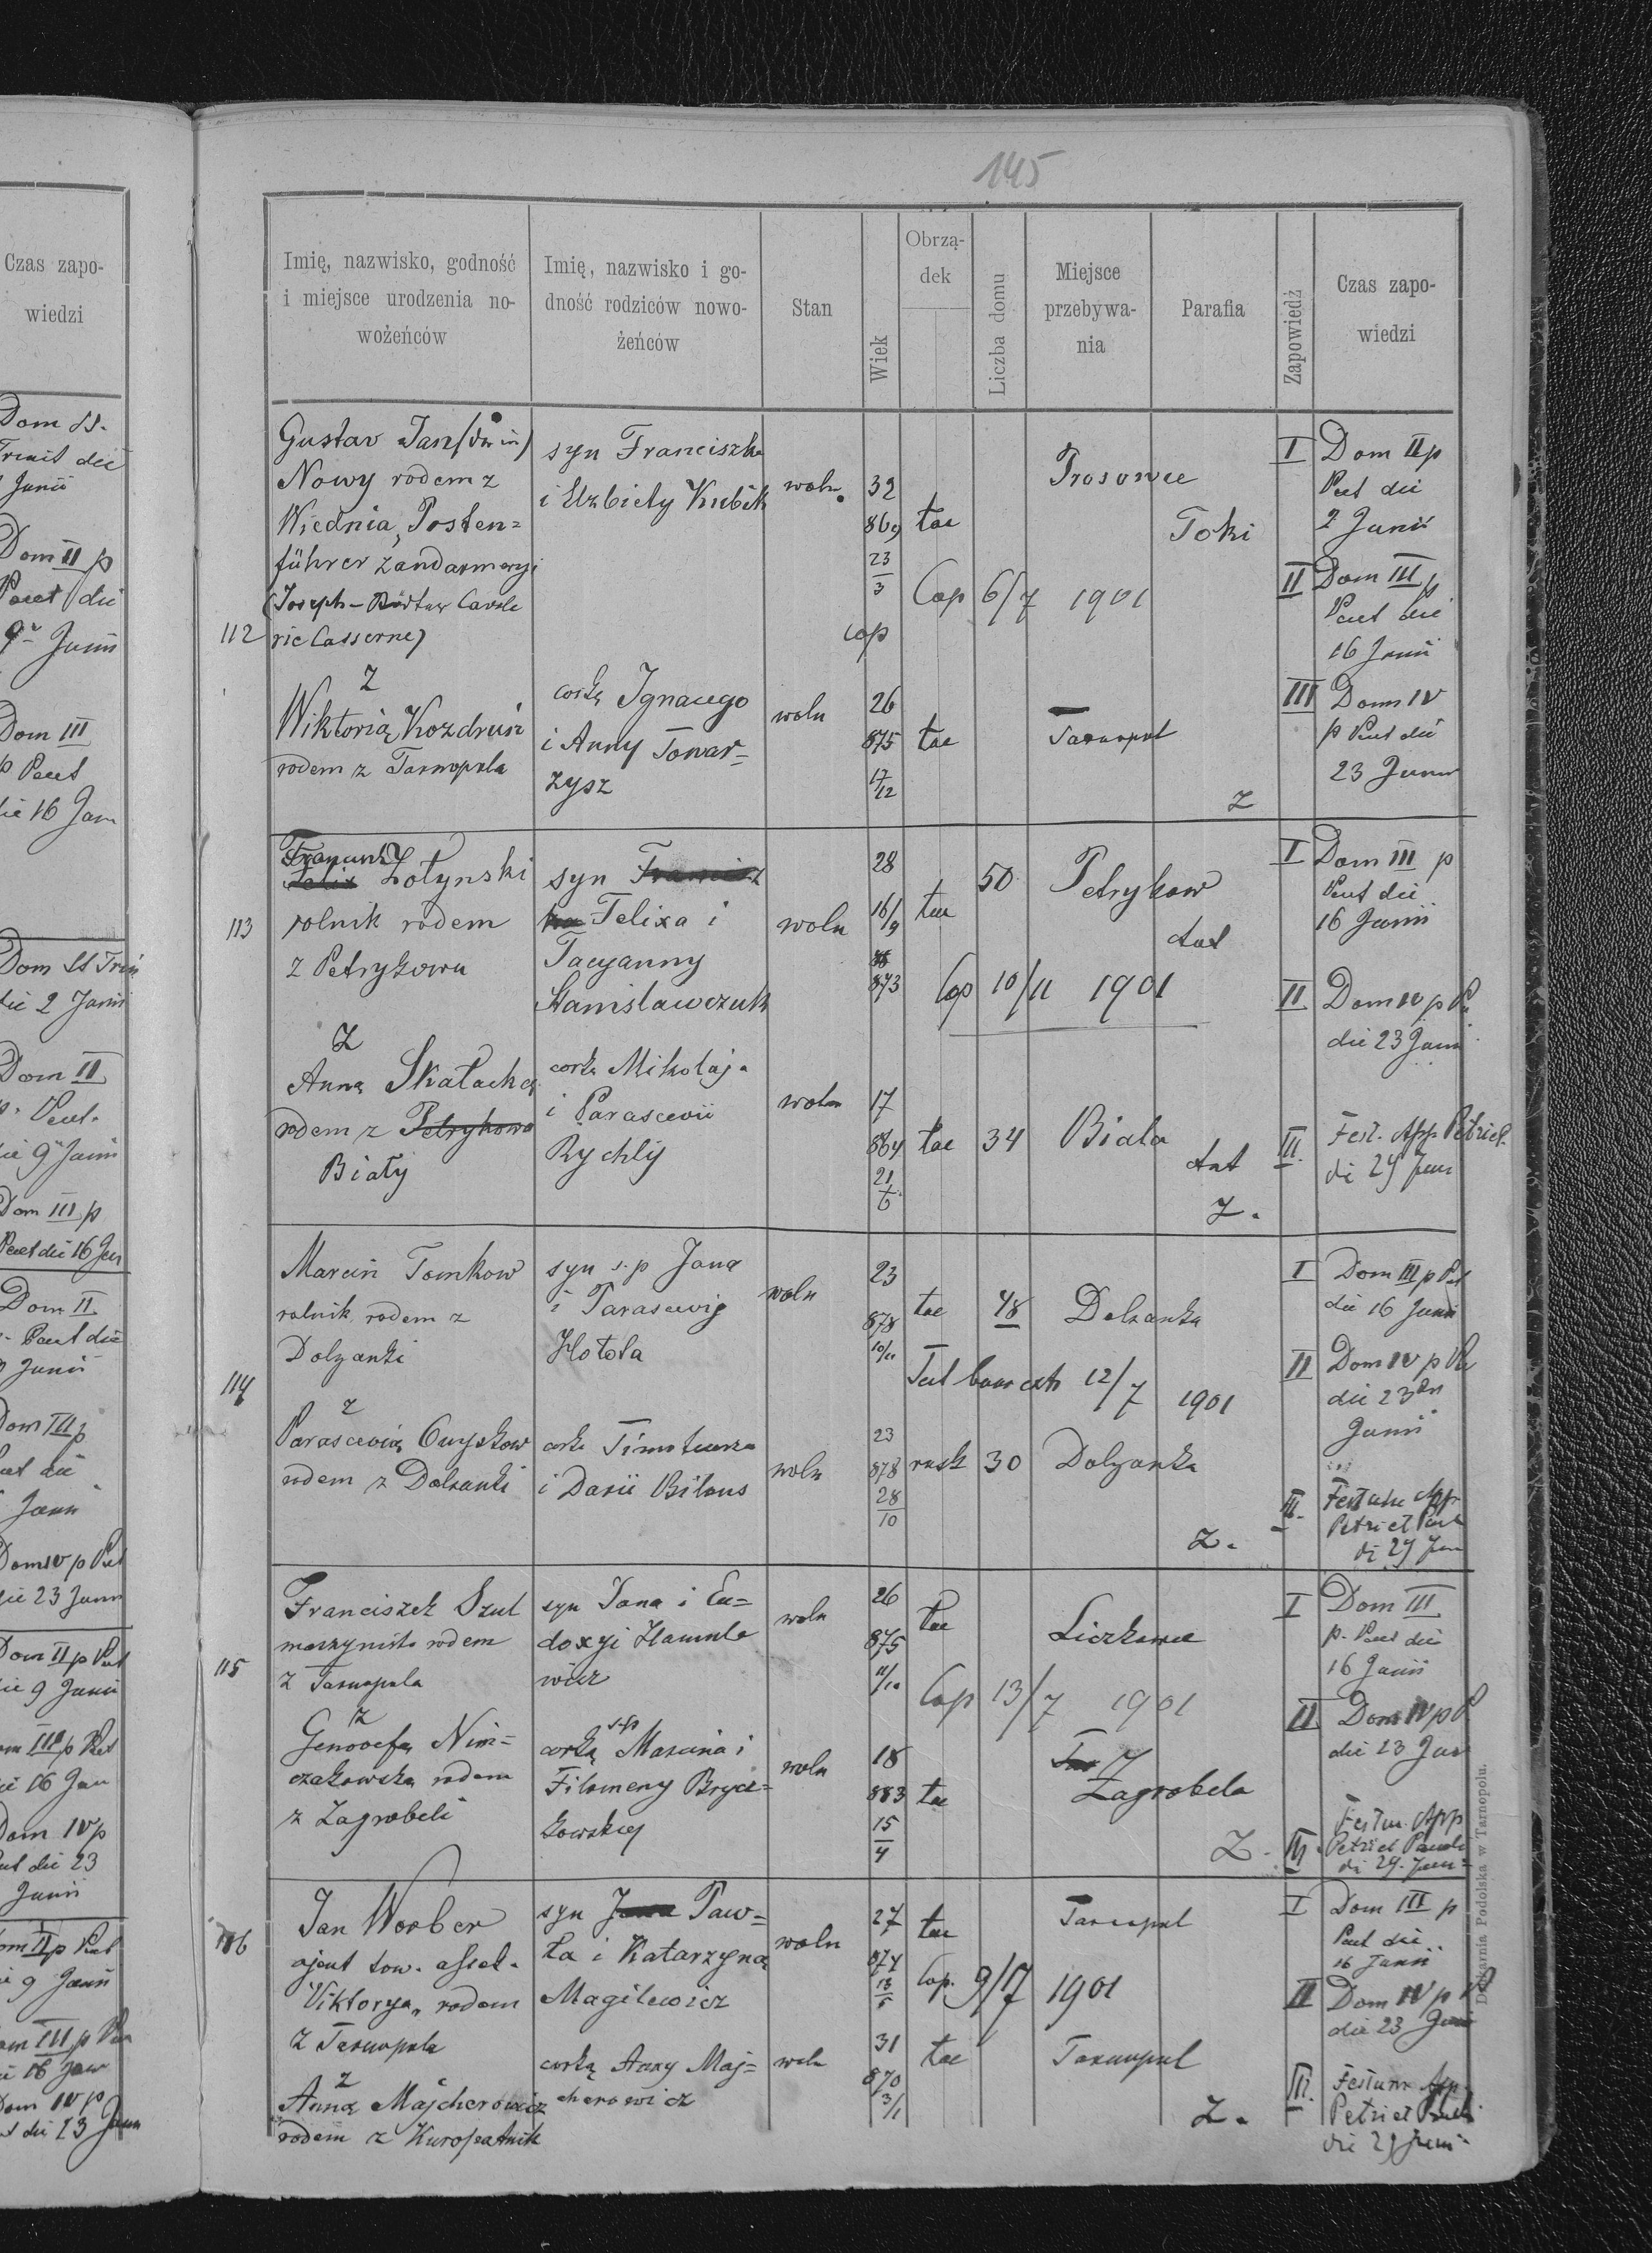 145
Czas zapo-
wiedzi
Dom SS.
Junii
Dom II p
Pent die
9 Junii
Dom III
p Pent
die 16 Jun
Dom St Trin
die 2 Junii
Dom II
p. Pent.
die 9 Junii
Dom III p
Pent die 16 Jun
Dom II
p. Pent die
9 Junii
Dom III p
Pent die
Junii
Dom IV p Pent
die 23 Junii
Dom II p Pent
die 9 Junii
Dom III p Pent
die 16 Jun
Dom IV p
Pent die 23
Junii
Dom II p Pent
die 9 Junii
Dom III p Pen
die 16 Jun
Dom IV p
Pent die 23 Jun
Imię, nazwisko, godność
i miejsce urodzenia no-
wożeńców
Imię, nazwisko i go-
dność rodziców nowo-
żeńców
Stan
Wiek
Obrzą-
dek
Liczba domu
Miejsce
przebywa-
nia
Parafia
Zapowiedź
Czas zapo-
wiedzi
112
Gustav Jan
Nowy rodem z
Wiednia, Posten=
führer żandarmeryi
(Joseph-
Casserne)
syn Franciszka
i Elżbiety Kubik
woln
32
869
23
3
łac
Prosowce
Toki
Cap 6/7 1901
cop
I Dom II p
Pent die
2 Junii
II Dom III p
Pent die
16 Junii
III Dom IV
p Pent die
23 Junii
z
Wiktorią Kozdruń
rodem z Tarnopola
corką Ignacego
i Anny Towar=
zysz
woln
26
875
17
12
łac
Tarnopol
Z
113
Franciszek
Felix Zołynski
rolnik rodem
z Petrykowa
syn Francisz
ka Felixa i
Tacyanny
Stanisławczuk
woln
28
16/9
873
łac
50
Petrykow
tat
Cop 10/11 1901
I Dom III p
Pent die
16 Junii
II Dom IV p Pe
die 23 Junii
z
Anną Skałacką
rodem z Petrykowa
Biały
corką Mikołaja
i Parascevii
Rychlij
woln
17
884
21
6
łac
34
Biała
tat
Z.
III. Fest. App. Petri et
die 29 Juni
114
Marcin Tomkow
rolnik rodem z
Dolżanki
syn s.p Jana
i Parascevij
Hotota
woln
23
878
10/11
łac
48
Dolżanka
12/7 1901
I Dom III p Pet
die 16 Junii
II Dom IV p Pe
die 23
Junii
z
rodem z Dolżanki
corką
i Darii Biłous
woln
23
878
28
10
rusk
30
Dolżanka
Z.
III. Festum App.
Petri et Paul
die 29 Jun
115
Franciszek Szul
maszynista rodem
z Tarnopola
syn Jana i Eu=
doxyi Hawryle
wicz
woln
26
875
11/10
łac
Liczkowce
Cop 13/7 1901
I Dom III
p. Pent die
16 Junii
II Dom IV p P
die 23 Jun
z
Genowefą Nim=
czakowską rodem
z Zagrobeli
s.p
corką Marcina i
Filomeny Brycz=
kowskiej
woln
18
883
15
4
łac
Zagrobela
Z.
III. Festum. App
Petri et Pauli
die 29. Juni=
116
Jan Worber
ajent tow. assek.
Viktorya, rodem
z Tarnopola
syn Jana Paw=
ła i Katarzyna
Magilewicz
woln
27
874
13
5
łac
Tarnopol
Cop. 9/7 1901
I Dom III p
Pent die
16 Junii
II Dom IV p P
die 23 Junii
z
Anną Majcherowicz
rodem z Kuropatnik
corką Anny Maj=
cherowicz
woln
31
870
3/1
łac
Tarnopol
Z.
III. Festum App
Petri et Pauli
die 29 Juni
Drukarnia Podolska w Tarnopolu.